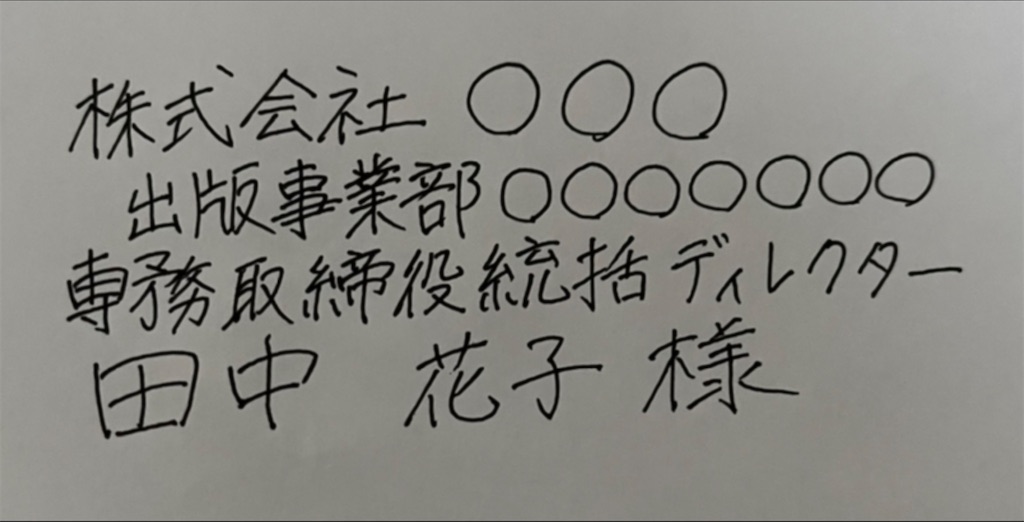 株式会社 ○○○
出版事業部○○○○○○○
専務取締役統括ディレクター
田中 花子 様